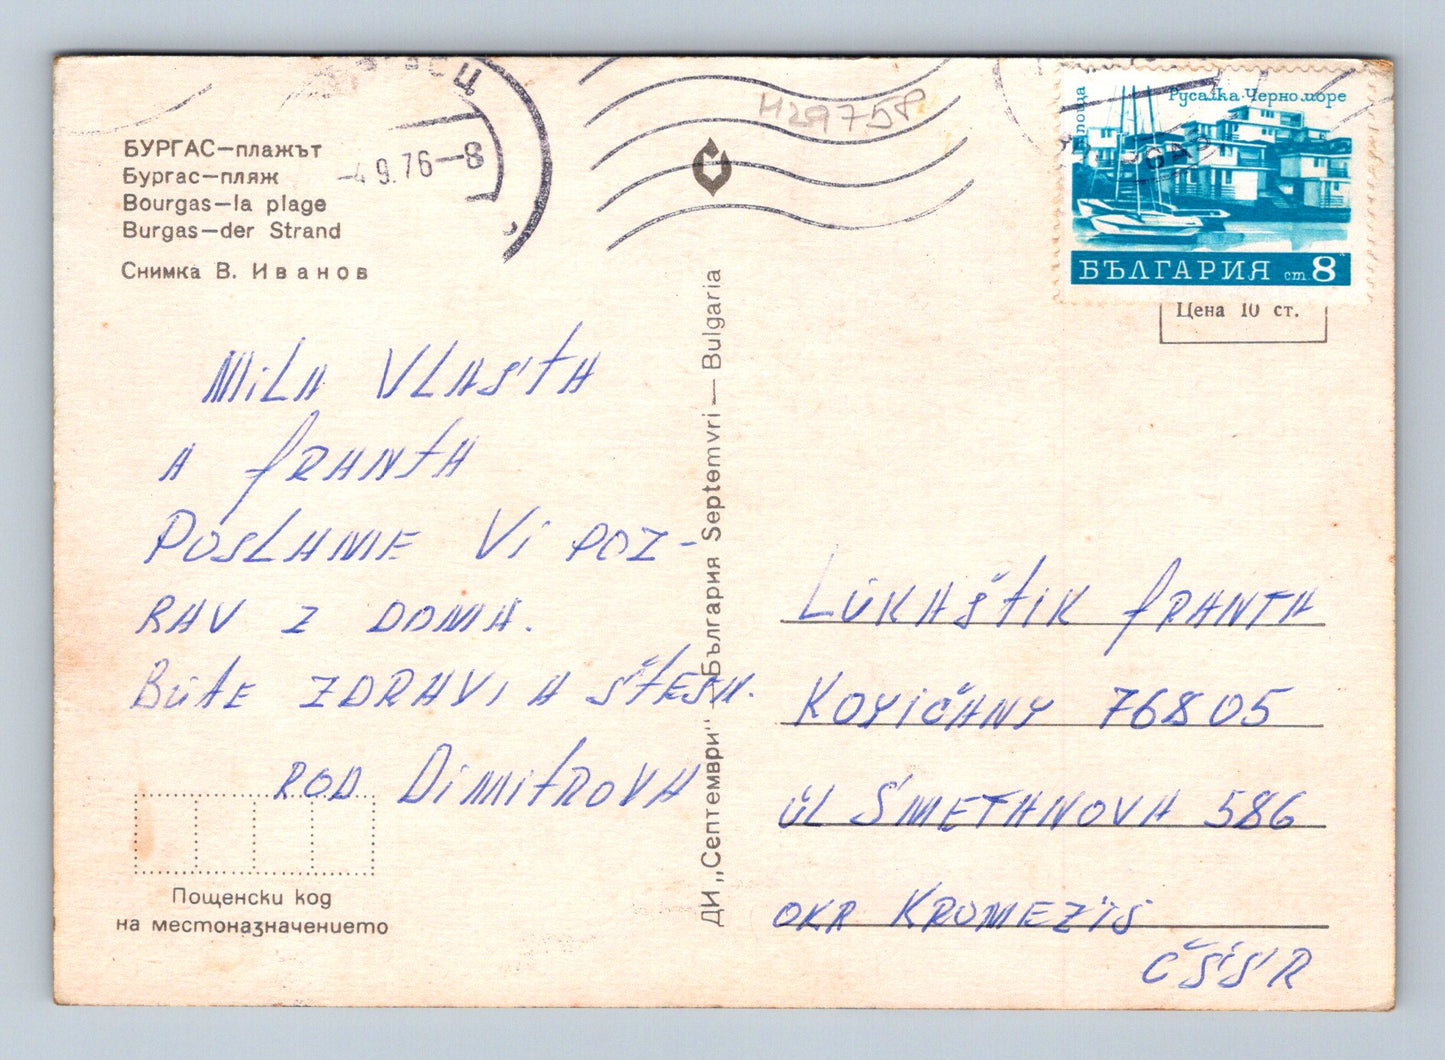 БУРГАС—плажът
Бургас—пляж
Bourgas—la plage
Burgas—der Strand
Снимка В. Иванов
-4.9.76—8
H29758
Русалка·Черно море
БЪЛГАРИЯ ст 8
Цена 10 ст.
MiLA VLASŤA
A FRANŤA
POSLAME Vi POZ-
RAV Z DOMA.
BUŤE ZDRAVi A ŠŤESN.
ROD DiMiTROVA
ДИ „Септември“ България Septemvri — Bulgaria
LUKAŠTIK FRANTA
KOYiČANY 76805
UL SMETANOVA 586
OKR KROMEZIS
ČSSR
Пощенски код
на местоназначението